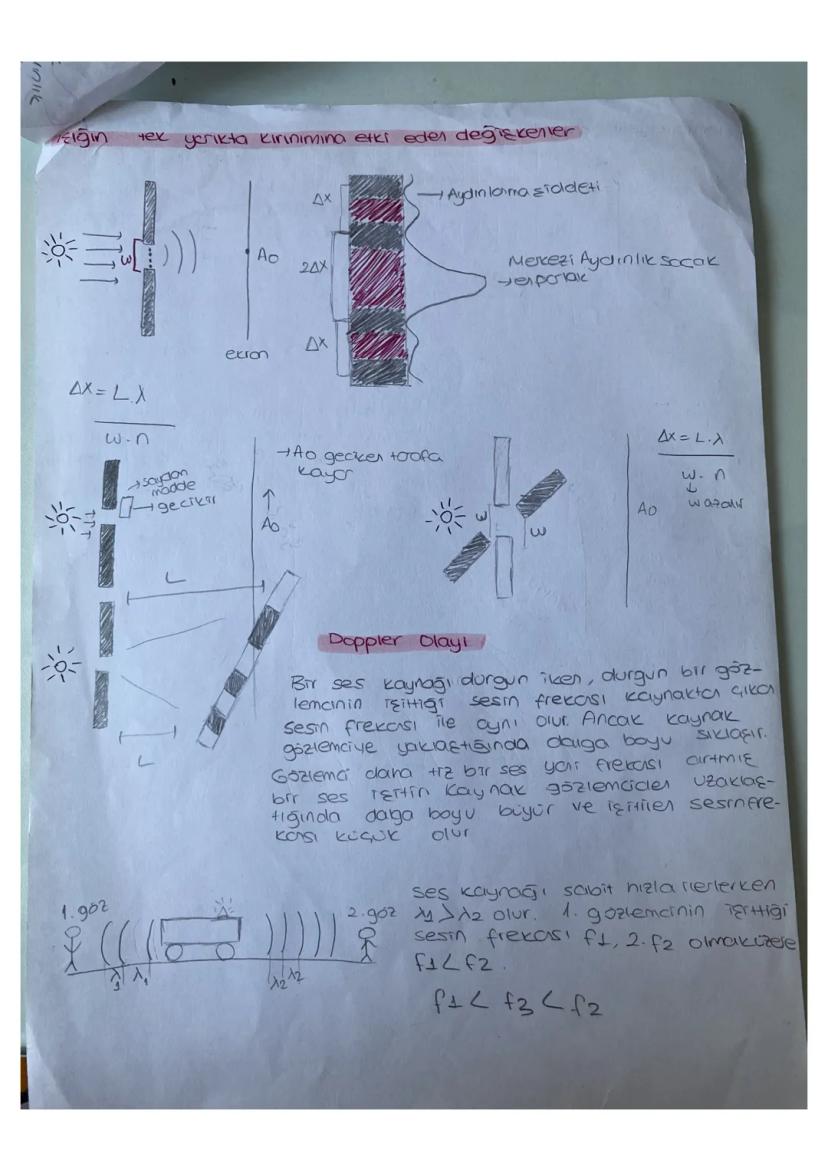 ışığın tek yarıkta kırınımına etki eden değişkenler
Δx
→ Aydınlanma şiddeti
w
A0
2Δx
Merkezi Aydınlık saçak
→ enparlak
Δx
ekran
Δx = L.λ
w.n
→ saydam
madde
→ gecikir
→ A0 geciken tarafa
kayar
A0
L
L
Δx = L.λ
w. n
↓
w azalır
w
w
A0
Doppler Olayı
Bir ses kaynağı durgun iken, durgun bir göz-
lemcinin işittiği sesin frekası kaynaktan çıkan
sesin frekansı ile aynı olur. Ancak kaynak
gözlemciye yaklaştığında dalga boyu sıklaşır.
Gözlemci daha tiz bir ses yani frekası artmış
bir ses işitir. Kaynak gözlemciden uzaklaş-
tığında dalga boyu büyür ve işitilen sesin fre-
kası küçük olur
1. göz
2. göz
λ1 λ1
λ2 λ2
ses kaynağı sabit hızla ilerlerken
λ1 > λ2 olur. 1. gözlemcinin işittiği
sesin frekası f1, 2. f2 olmaküzere
f1 < f2.
f1 < f3 < f2